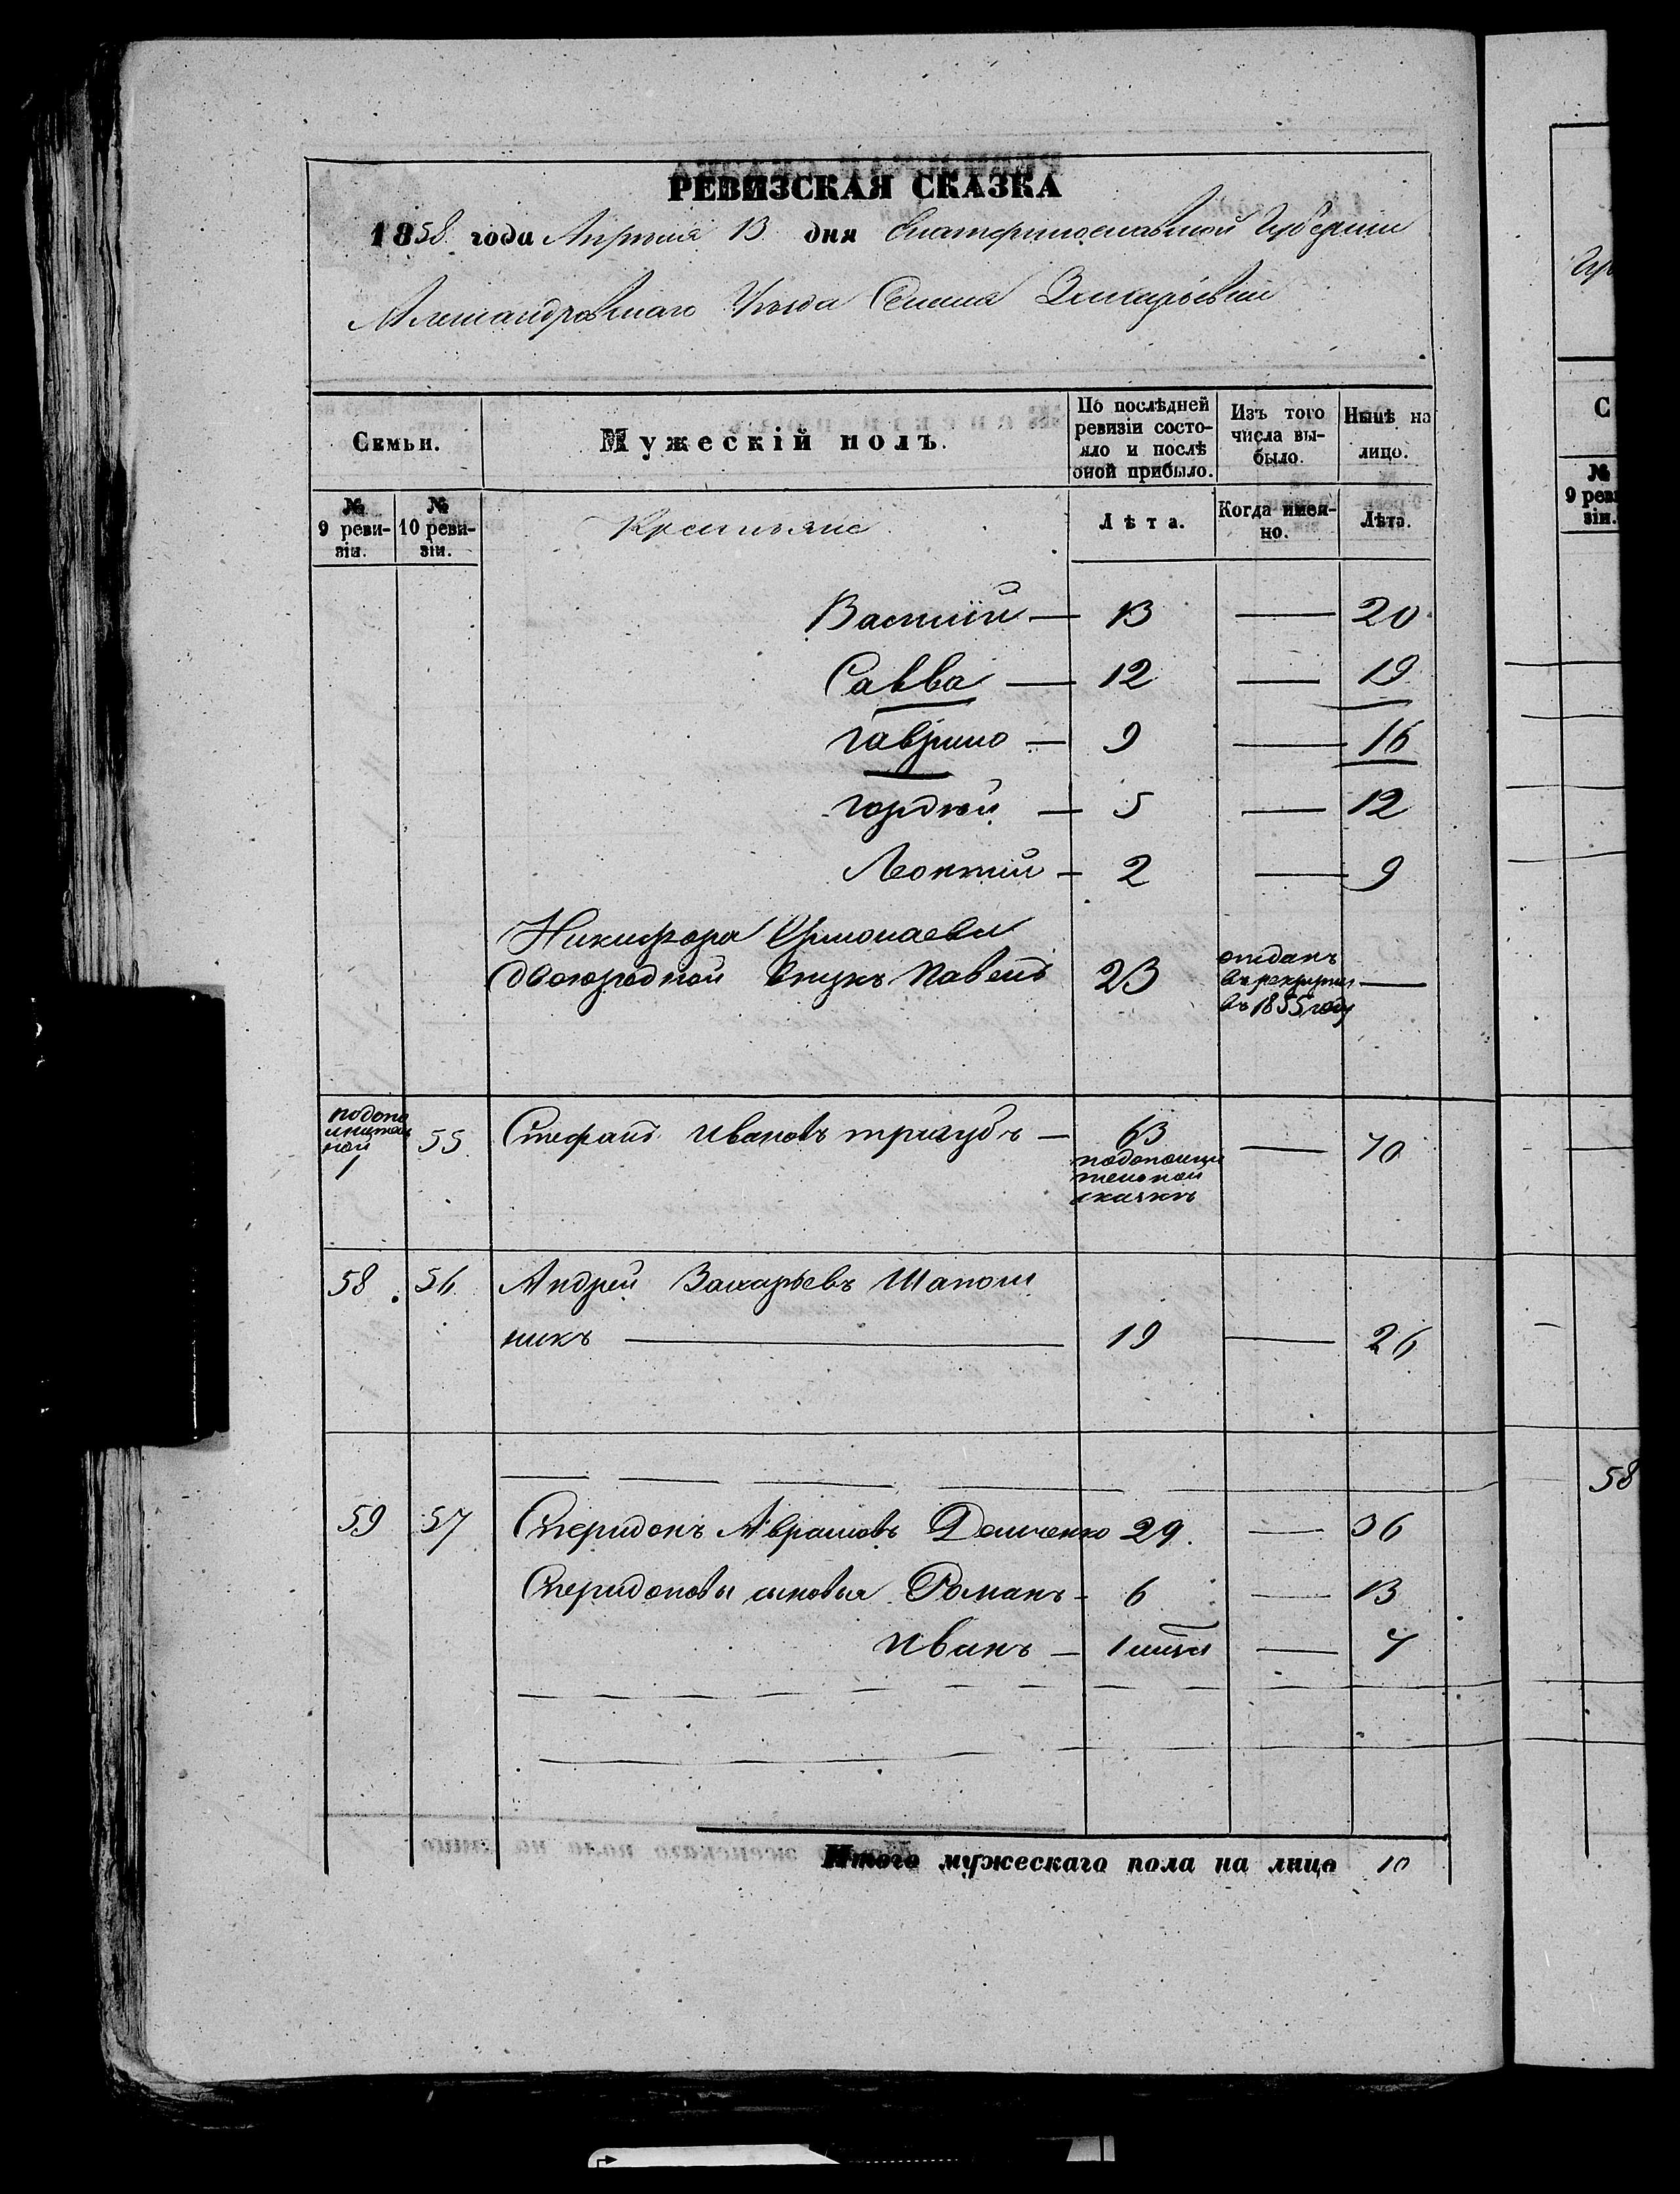 РЕВИЗСКАЯ СКАЗКА
1858 года Апреля 13 дня Екатеринославской Губернии
Александровскаго Уезда Селенія Захарьевки
Семьи.
Мужескій полъ.
По послѣдней ревизіи состояло и послѣ оной прибыло.
Изъ того числа выбыло.
Нынѣ на лицо.
№ 9 ревизіи.
№ 10 ревизіи.
Крестьяне
Лѣта.
Когда именно.
Лѣта.
Василій — 13 — 20
Савва — 12 — 19
Гаврило — 9 — 16
Гордѣй — 5 — 12
Леонтий — 2 — 9
Никифора Ермолаева
двоюродной внукъ Павелъ 23 отданъ въ рекруты въ 1855 году —
подополнительной 1 55 Стефанъ Ивановъ Тригубъ — 63 подополнительной сказкѣ — 70
58 56 Андрей Захарьевъ Шаполш
никъ — 19 — 26
59 57 Спиридонъ Аврамовъ Демченко 29 — 36
Спиридоновы сыновья Романъ — 6 — 13
Иванъ — — 7
Итого мужескаго пола на лицо 10
С
№
9 реви
зіи.
58